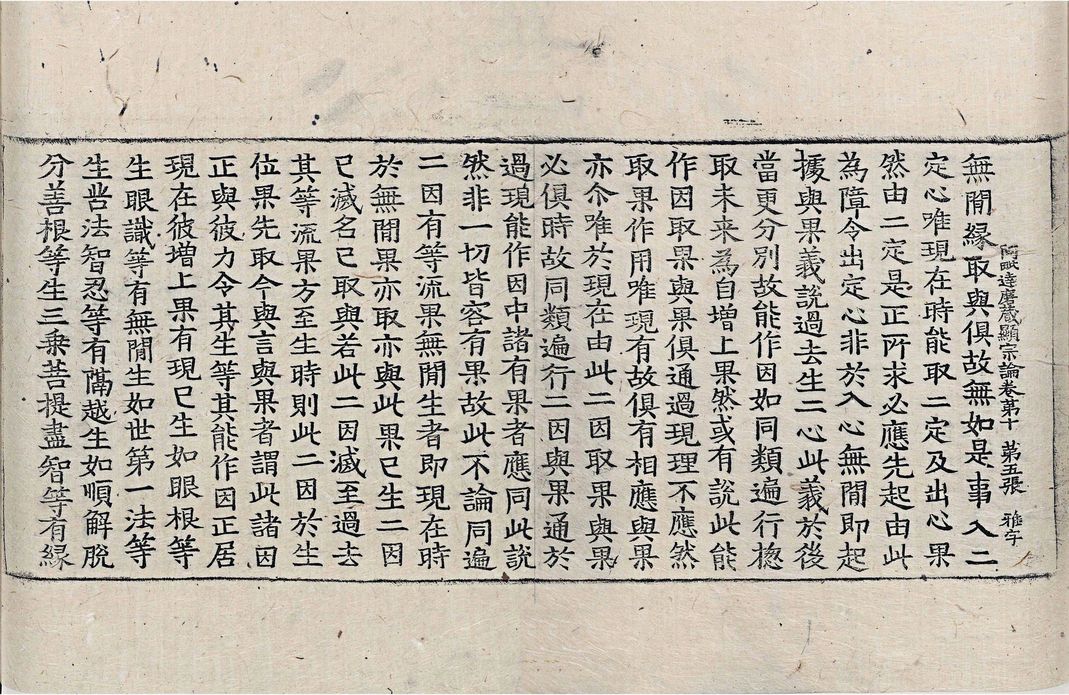 阿毗達磨藏顯宗論卷第十 第五張 雅字
無間緣取與俱故無如是事入二
定心唯現在時能取二定及出心果
然由二定是正所求必應先起由此
為障令出定心非於入心無間即起
據與果義說過去生二心此義於後
當更分別故能作因如同類遍行揔
取未来為自增上果然或有說此能
作因取果與果俱通過現理不應然
取果作用唯現有故俱有相應與果
亦尒唯於現在由此二因取果與果
必俱時故同類遍行二因與果通於
過現能作因中諸有果者應同此說
然非一切皆容有果故此不論同遍
二因有等流果無間生者即現在時
於無間果亦取亦與此果已生二因
已滅名已取與若此二因滅至過去
其等流果方至生時則此二因於生
位果先取今與言與果者謂此諸因
正與彼力令其生等其能作因正居
現在彼增上果有現已生如眼根等
生眼識等有無間生如世第一法等
生苦法智忍等有隔越生如順解脫
分善根等生三乗菩提盡智等有緣